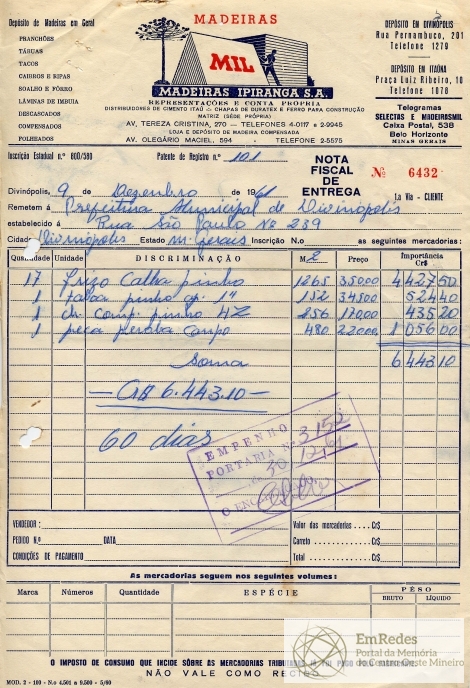 MADEIRAS
MIL
MADEIRAS IPIRANGA S.A.
REPRESENTAÇÕES E CONTA PRÓPRIA
DISTRIBUIDORES DE CIMENTO ITAÚ — CHAPAS DE DURATEX E FERRO PARA CONSTRUÇÃO
MATRIZ (SÉDE PRÓPRIA)
AV. TEREZA CRISTINA, 270 — TELEFONES 4-0117 e 2-9945
LOJA E DEPÓSITO DE MADEIRA COMPENSADA
AV. OLEGÁRIO MACIEL, 594 - TELEFONE 2-5575
Depósito de Madeiras em Geral
PRANCHÕES
TÁBUAS
TACOS
CAIBROS E RIPAS
SOALHO E FÔRRO
LÂMINAS DE IMBUIA
DESCASCADOS
COMPENSADOS
FOLHEADOS
DEPÓSITO EM DIVINÓPOLIS
Rua Pernambuco, 201
Telefone 1279
DEPÓSITO EM ITAÚNA
Praça Luiz Ribeiro, 10
Telefone 1078
Telegramas
SELECTAS E MADEIRASMIL
Caixa Postal, 538
Belo Horizonte
MINAS GERAIS
Inscrição Estadual n.º 800/580
Patente de Registro n.º 101
NOTA FISCAL DE ENTREGA
Nº 6432
1.a Via - CLIENTE
Divinópolis, 9 de Dezembro de 1961
Remetem á Prefeitura Municipal de Divinópolis
estabelecido á Rua São Paulo Nº 239
Cidade Divinópolis Estado M. Gerais Inscrição N.o as seguintes mercadorias:
Quantidade Unidade DISCRIMINAÇÃO M2 Preço Importância Cr$
17 Frizo Calha pinho 1265 350,00 4 427 50
1 Taboa pinho ap. 1" 152 345,00 524 40
1 Comp. pinho 4ª 256 170,00 435 20
1 peça peroba Campo 480 220,00 1 056 00
Soma 6 443 10
— CR$ 6.443.10 —
60 dias
EMPENHO
PORTARIA N.º 3152
30 12 61
O ENCARREGADO
VENDEDOR:
PEDIDO N.o DATA
CONDIÇÕES DE PAGAMENTO
Valor das mercadorias Cr$
Carreto Cr$
Total Cr$
As mercadorias seguem nos seguintes volumes:
Marca Números Quantidade ESPÉCIE PÊSO
BRUTO LÍQUIDO
O IMPOSTO DE CONSUMO QUE INCIDE SÔBRE AS MERCADORIAS TRIBUTADAS JÁ FOI PAGO
NÃO VALE COMO RECIBO
MOD. 2 - 100 - N.o 4.501 a 9.500 - 5/60
EmRedes
Portal da Memória
do Centro-Oeste Mineiro